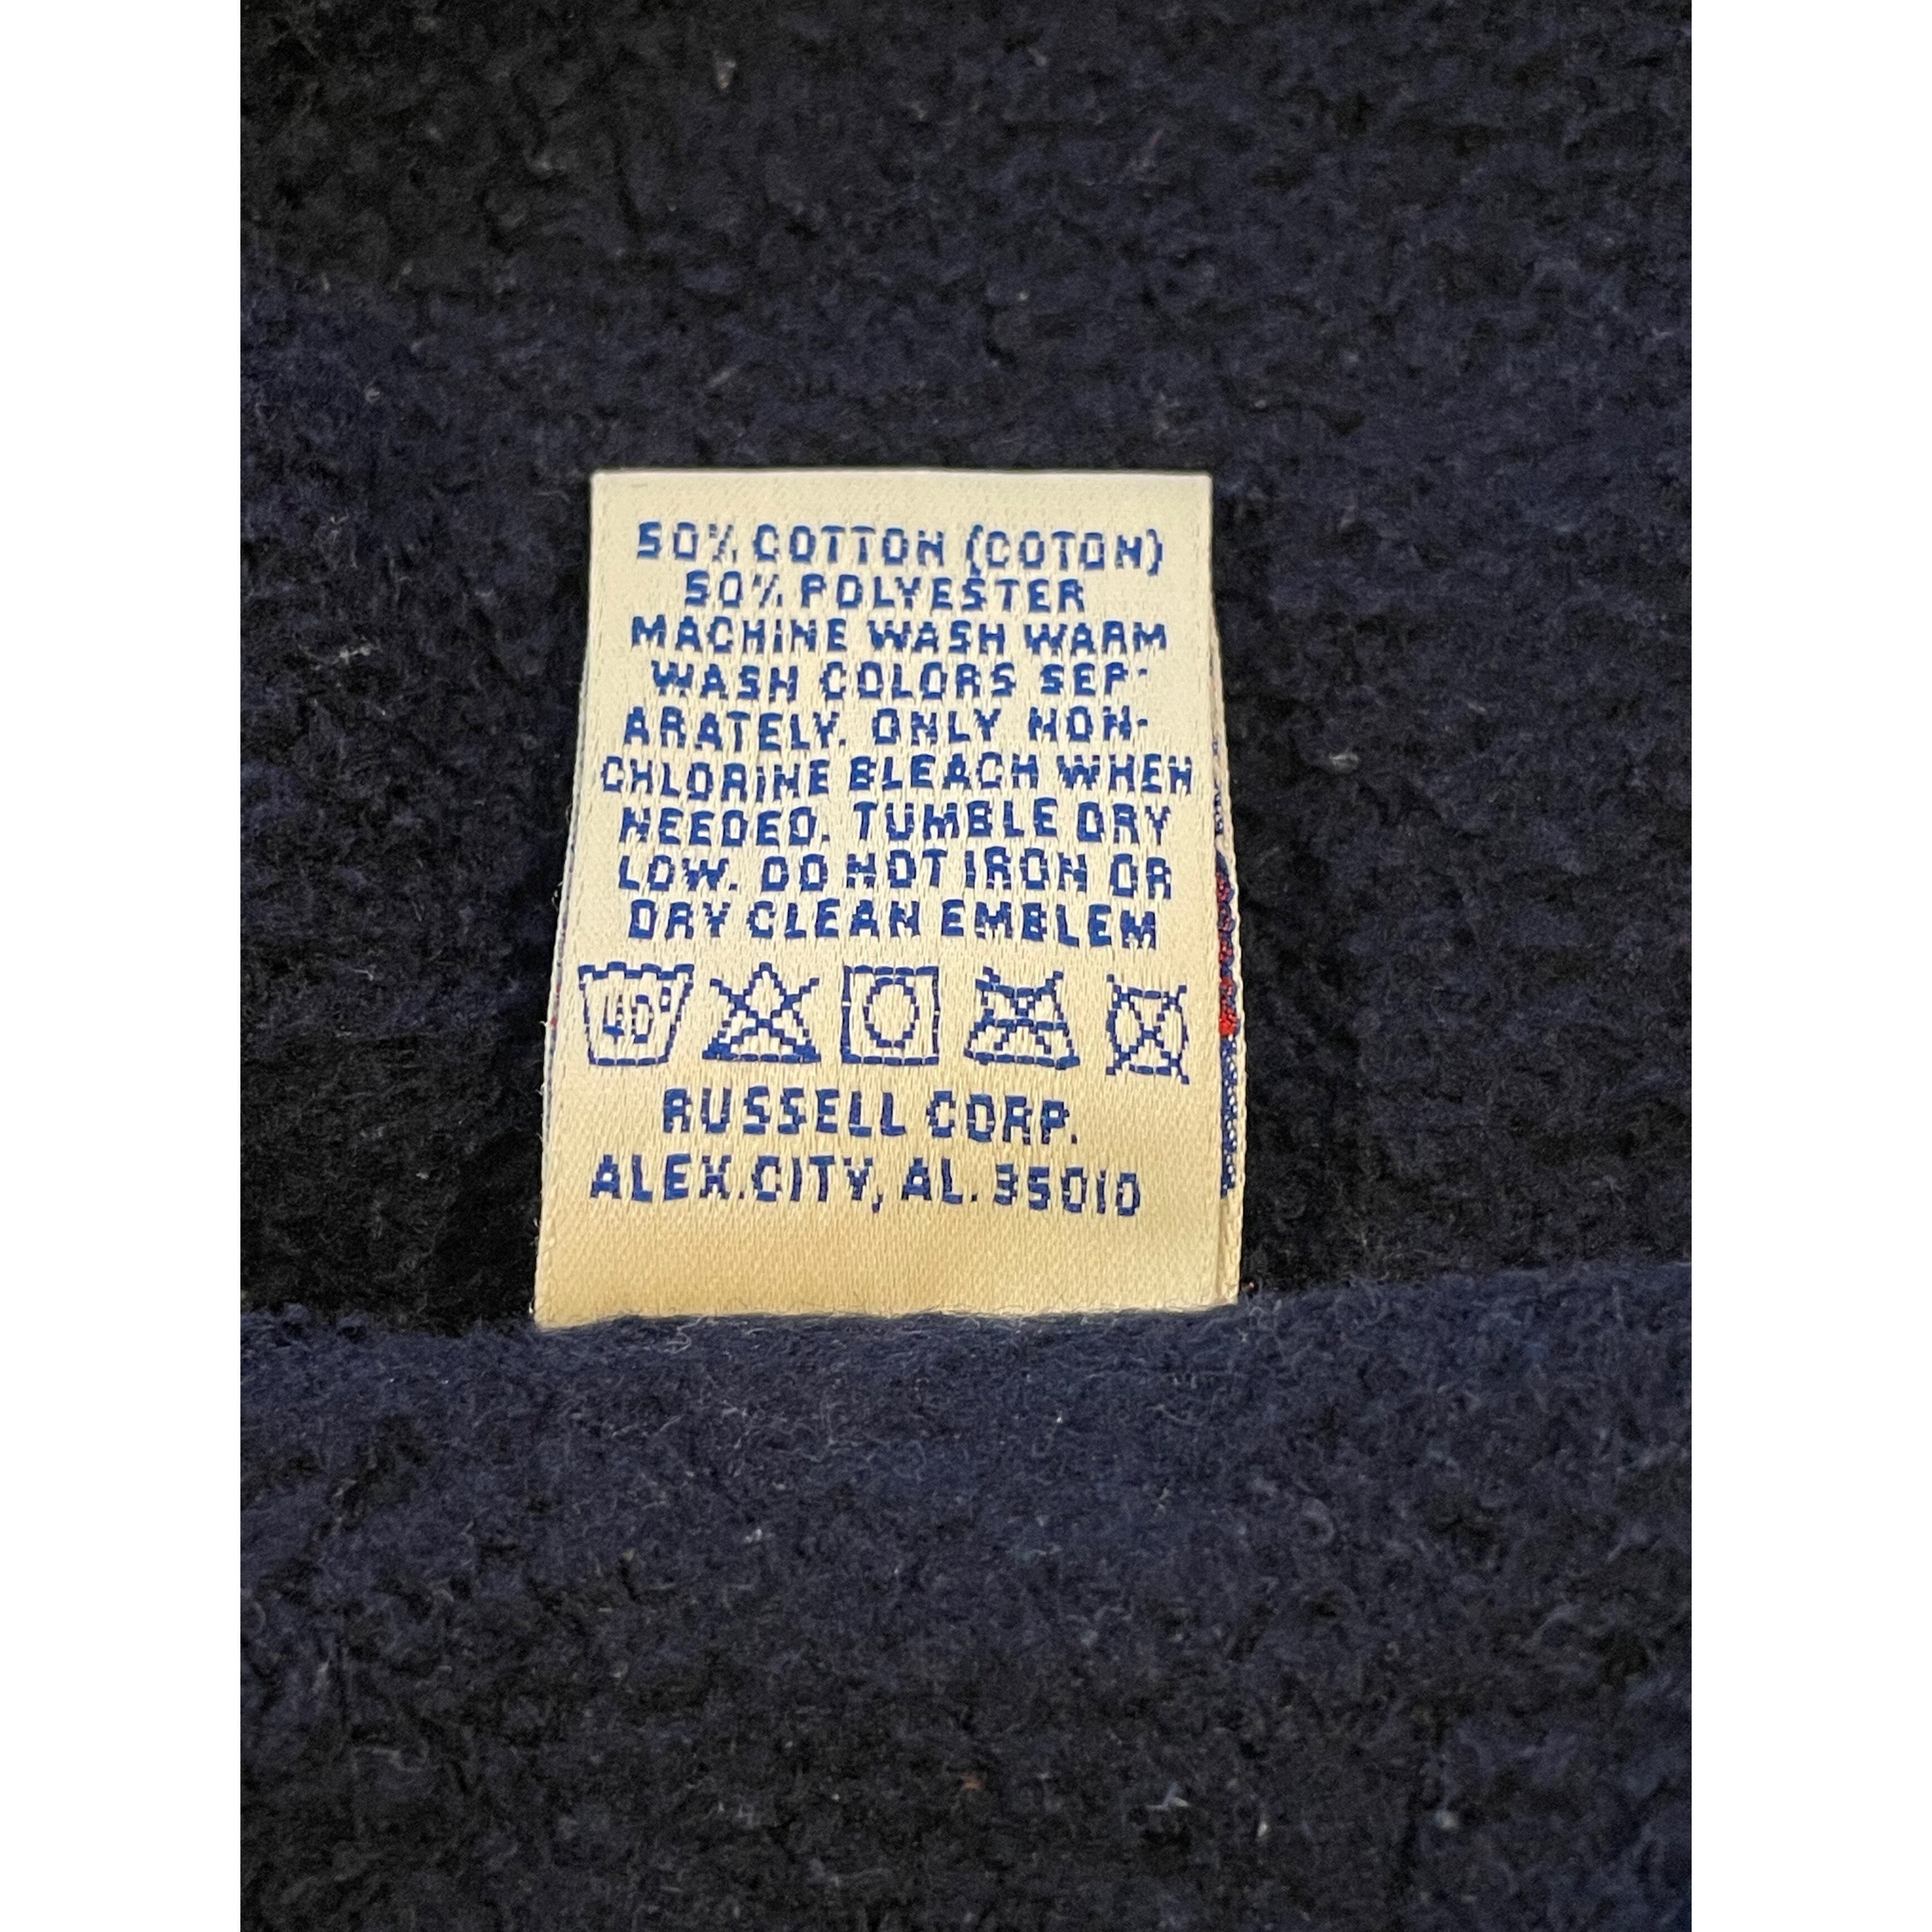 50% COTTON (COTON)
50% POLYESTER
MACHINE WASH WARM
WASH COLORS SEP-
ARATELY. ONLY NON-
CHLORINE BLEACH WHEN
NEEDED. TUMBLE DRY
LOW. DO NOT IRON OR
DRY CLEAN EMBLEM
40°
RUSSELL CORP.
ALEX.CITY, AL. 35010